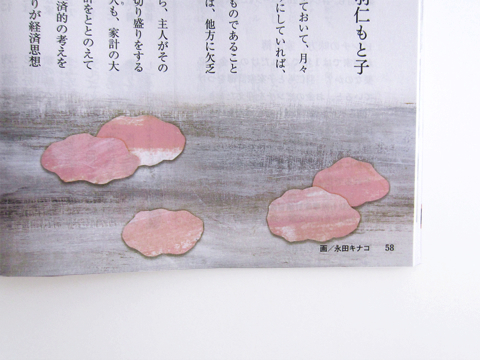 羽仁もと子
ておいて、月々
にしていれば、
ものであること
は、他方に欠乏
ら、主人がその
切り盛りをする
人も、家計の大
計をととのえて
済的の考えを
りが経済思想
画／永田キナコ 58